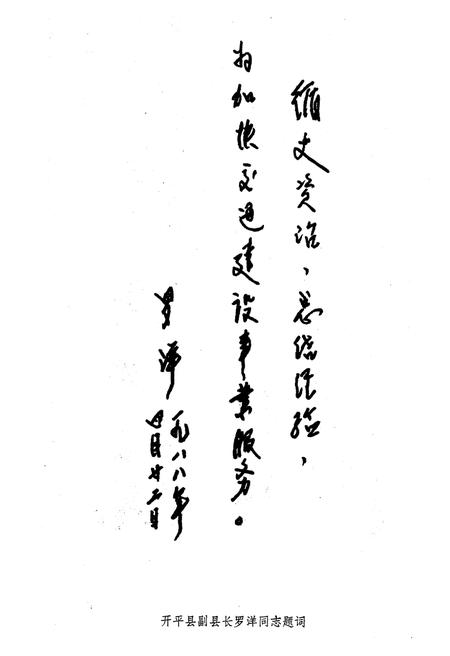 循史资治、总结经验、
为加快交通建设事業服务。
罗洋
一九八八年
四月廿二日
开平县副县长罗洋同志题词